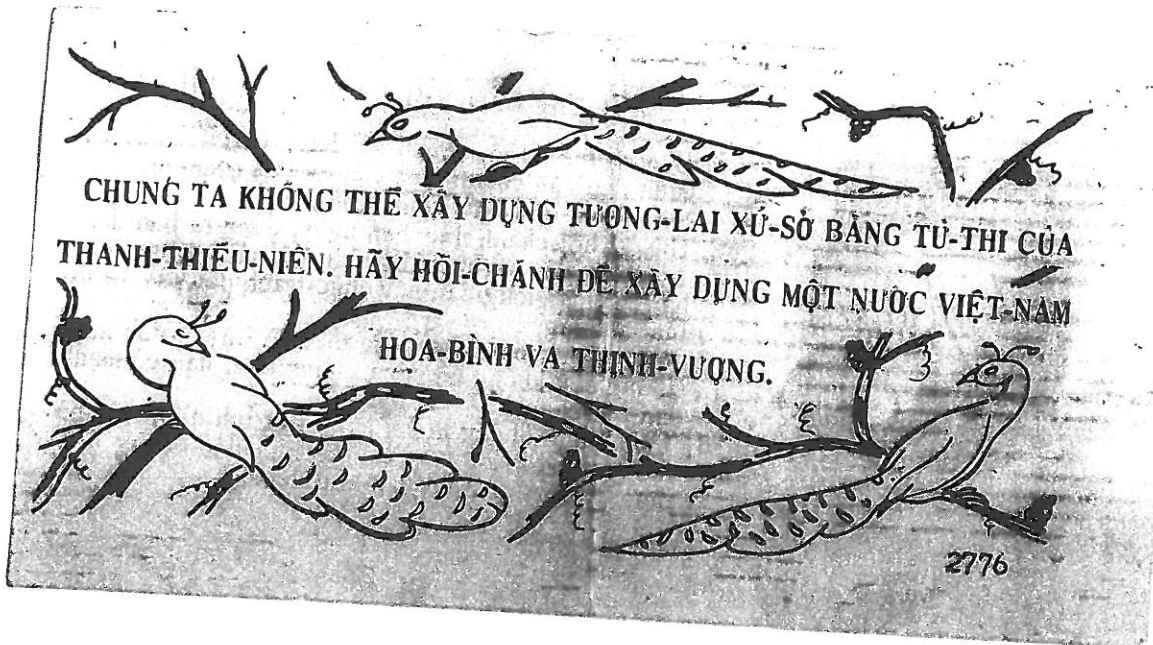 CHUNG TA KHÔNG THỂ XÂY DỰNG TƯƠNG-LAI XỨ-SỞ BẰNG TỬ-THI CỦA
THANH-THIẾU-NIÊN. HÃY HỒI-CHÁNH ĐỂ XÂY DỰNG MỘT NƯỚC VIỆT-NAM
HOA-BÌNH VA THỊNH-VƯỢNG.
2776